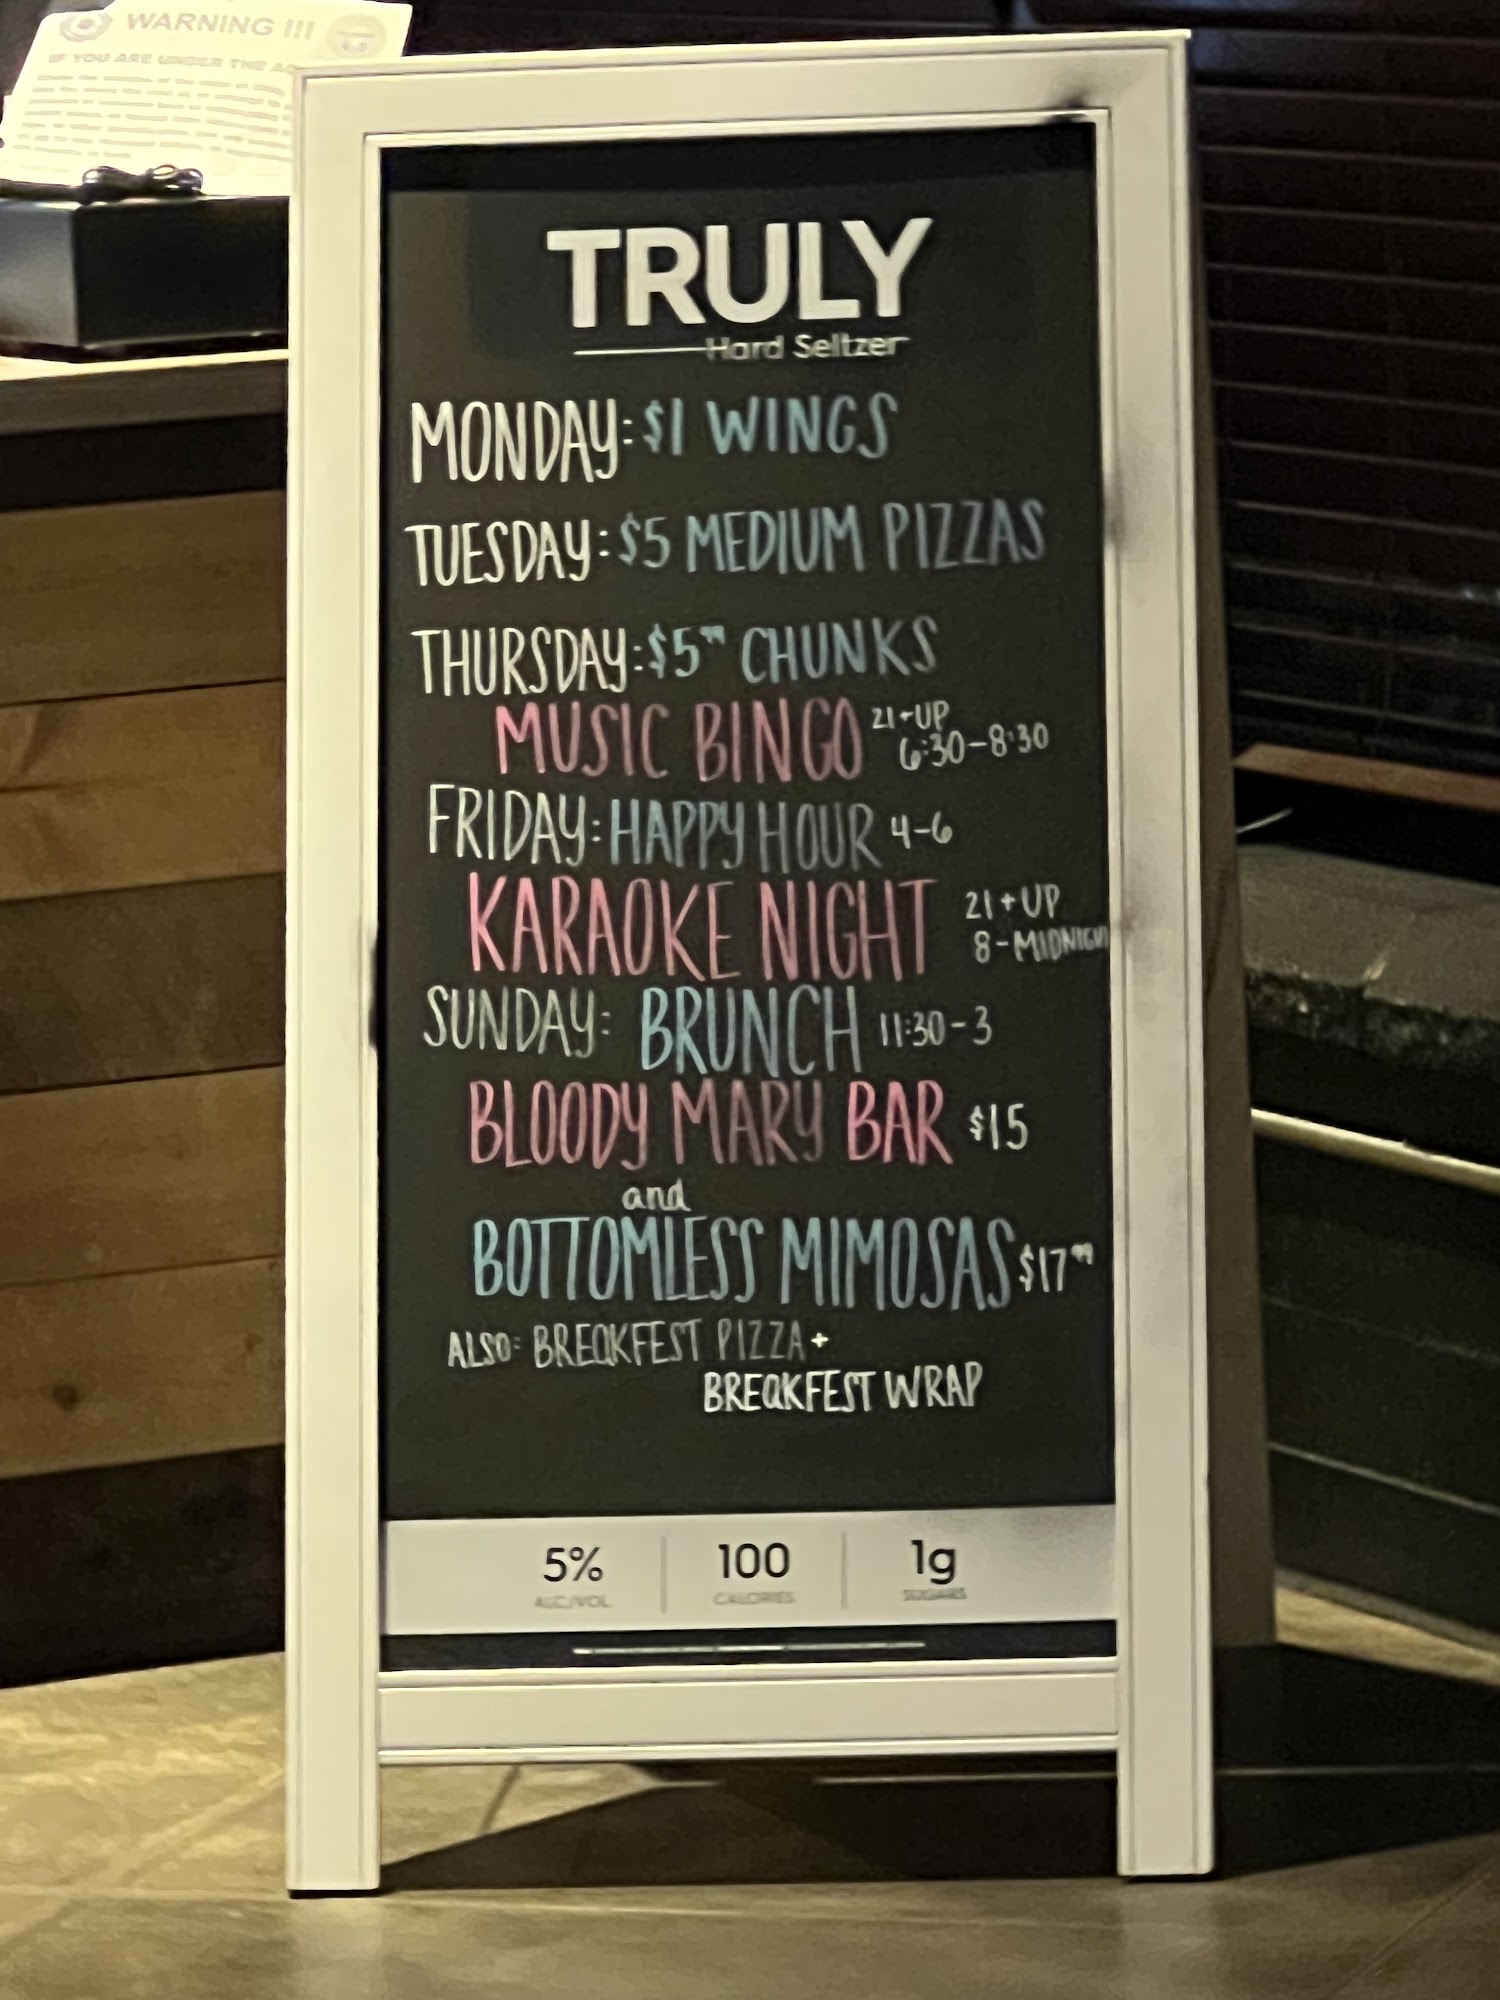 WARNING !!!
IF YOU ARE UNDER THE
TRULY
Hard Seltzer
MONDAY: $1 WINGS
TUESDAY: $5 MEDIUM PIZZAS
THURSDAY: $5.99 CHUNKS
MUSIC BINGO 21+UP
6:30-8:30
FRIDAY: HAPPY HOUR 4-6
KARAOKE NIGHT 21+UP
8-MIDNIGHT
SUNDAY: BRUNCH 11:30-3
BLOODY MARY BAR $15
and
BOTTOMLESS MIMOSAS $17.99
ALSO: BREAKFEST PIZZA +
BREAKFEST WRAP
5% 100 1g
ALC/VOL CALORIES SUGARS